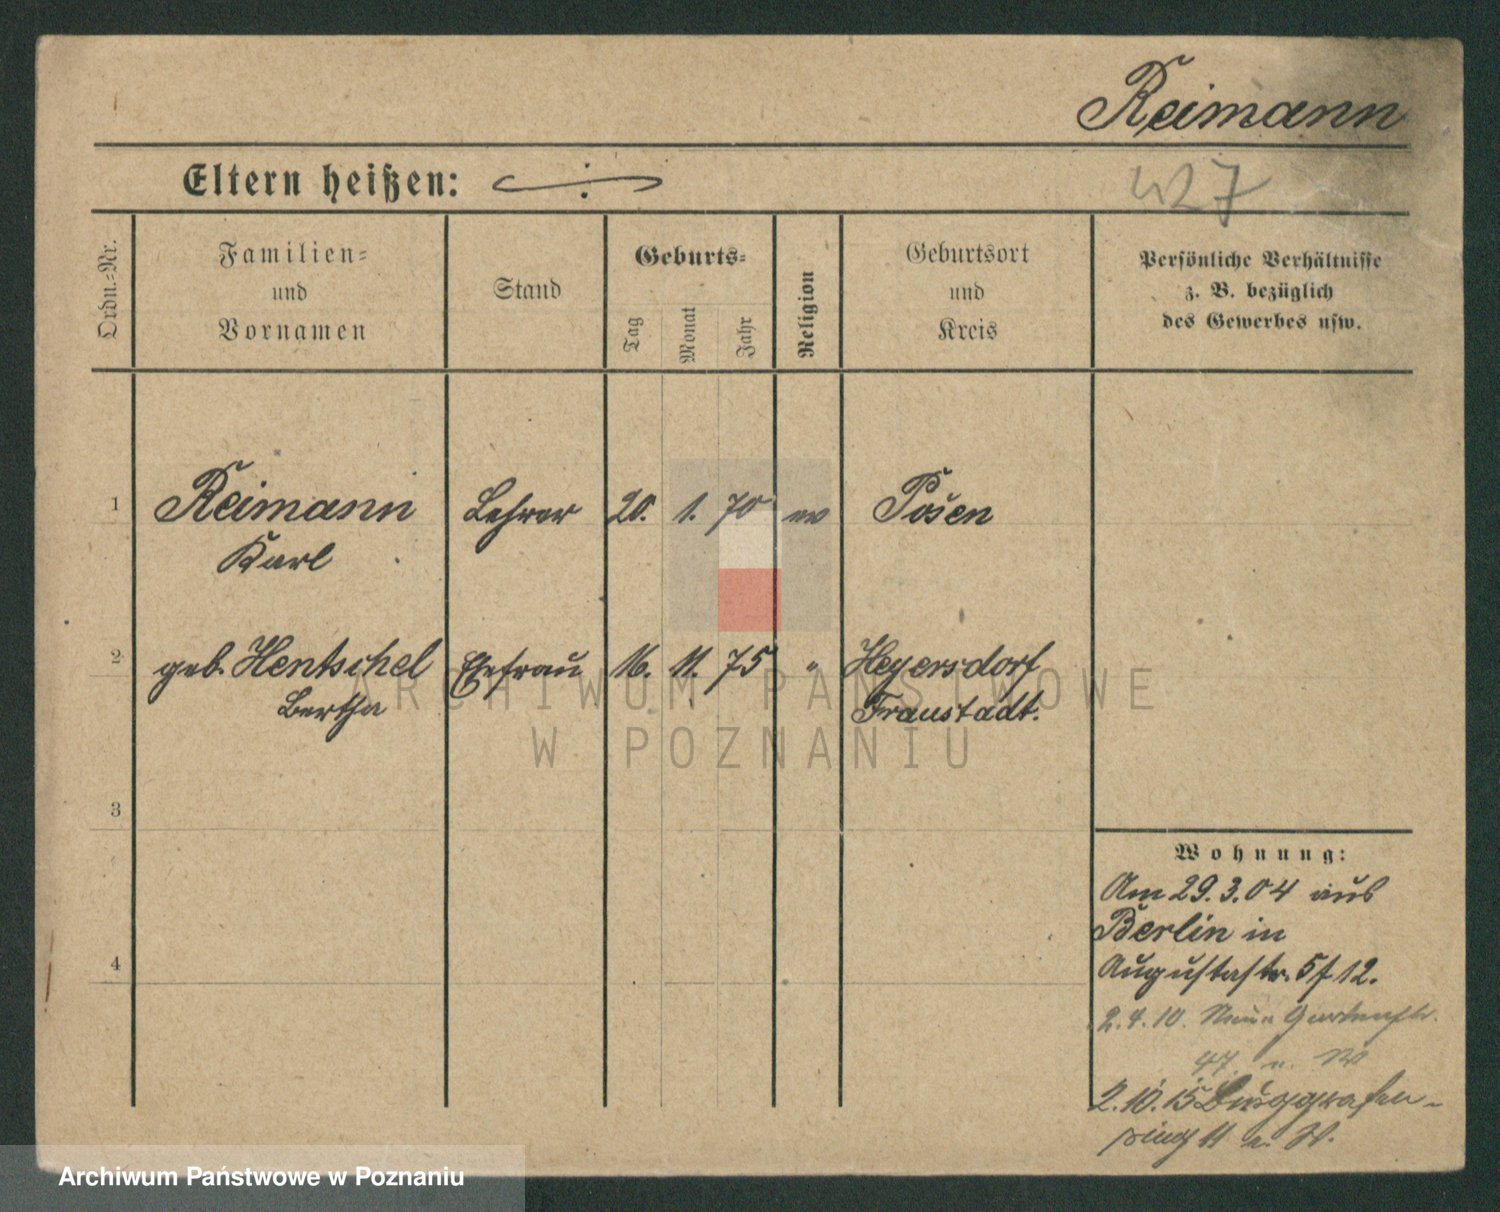 Reimann
Eltern heißen:
427
Ordn.-Nr.
Familien-
und
Vornamen
Stand
Geburts-
Tag
Monat
Jahr
Religion
Geburtsort
und
Kreis
Persönliche Verhältnisse
z. B. bezüglich
des Gewerbes usw.
1 Reimann Lehrer 20. 1. 70 ev Posen
Karl
2 geb. Hentschel Ehefrau 16. 11. 75 " Heyersdorf
Bertha Fraustadt.
3
4
Wohnung:
Am 29.3.04 aus
Berlin in
Augustastr. 5 f 12.
2.4.10. Neue Gartenstr.
47. u. W
2.10.15 Burggrafen-
ring 11 u. W.
ARCHIWUM PAŃSTWOWE
W POZNANIU
Archiwum Państwowe w Poznaniu